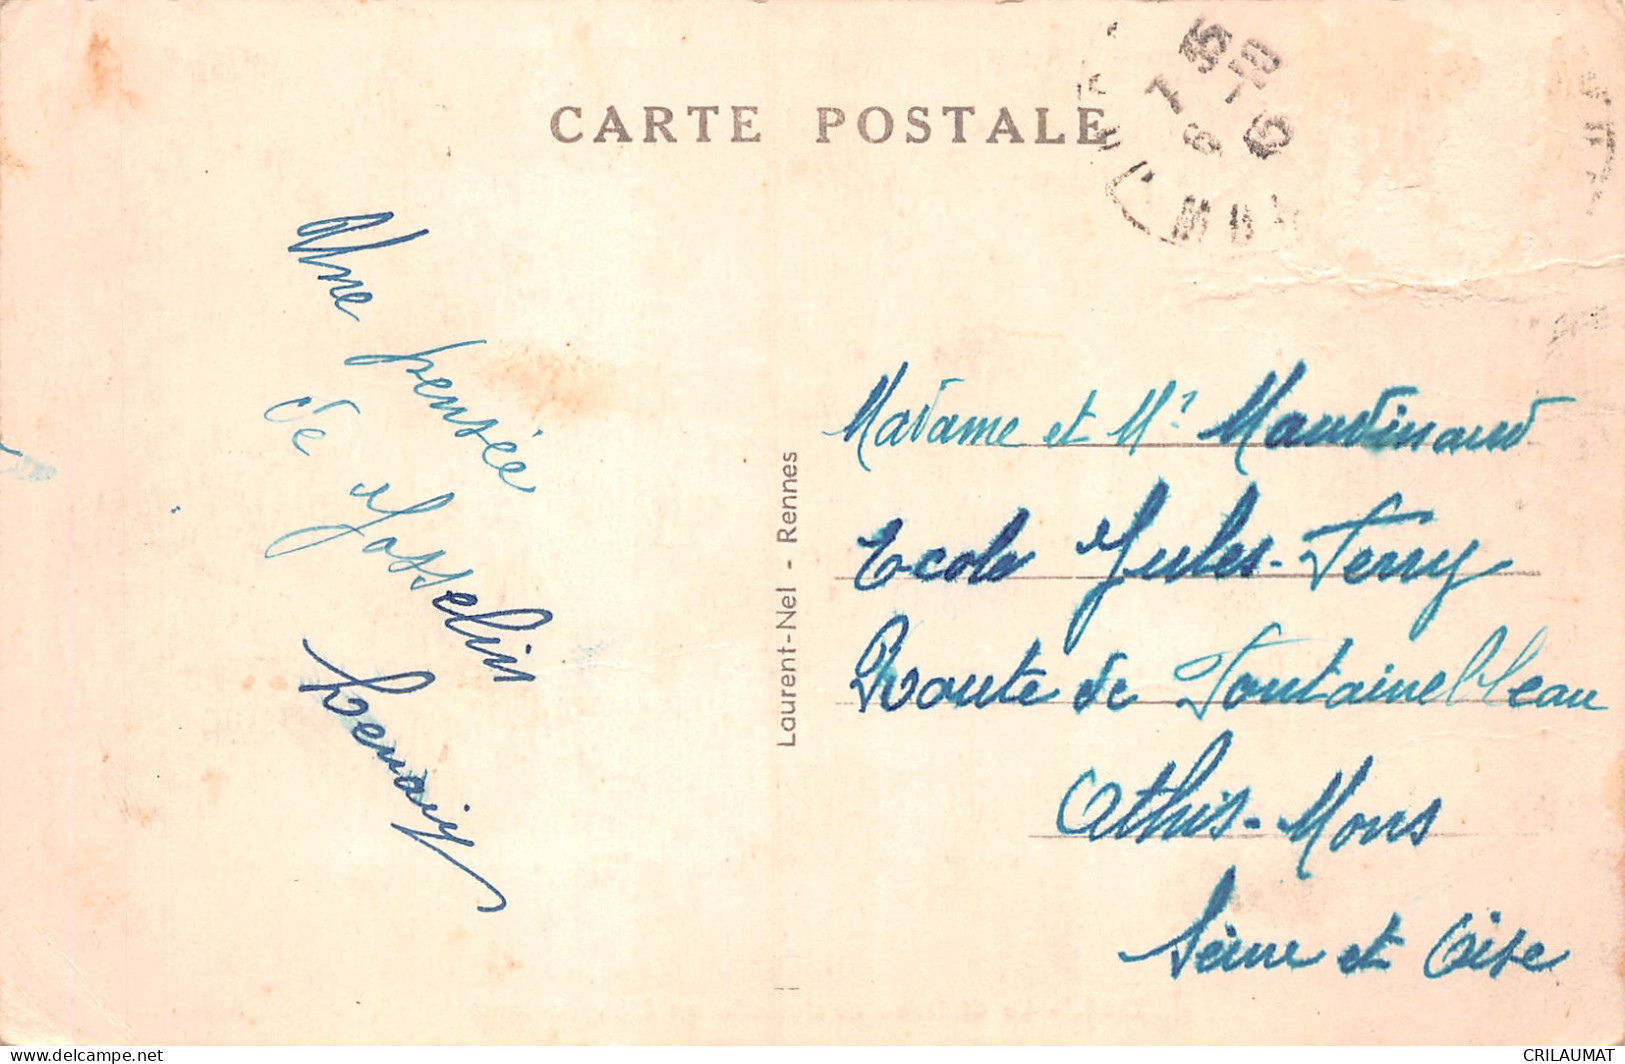 CARTE POSTALE
Une pensée
de Josselin
Laurent-Nel - Rennes
Madame et Mr Maudinaud
Ecole Jules-Ferry
Route de Fontainebleau
Athis-Mons
Seine et Oise
delcampe.net
CRILAUMAT